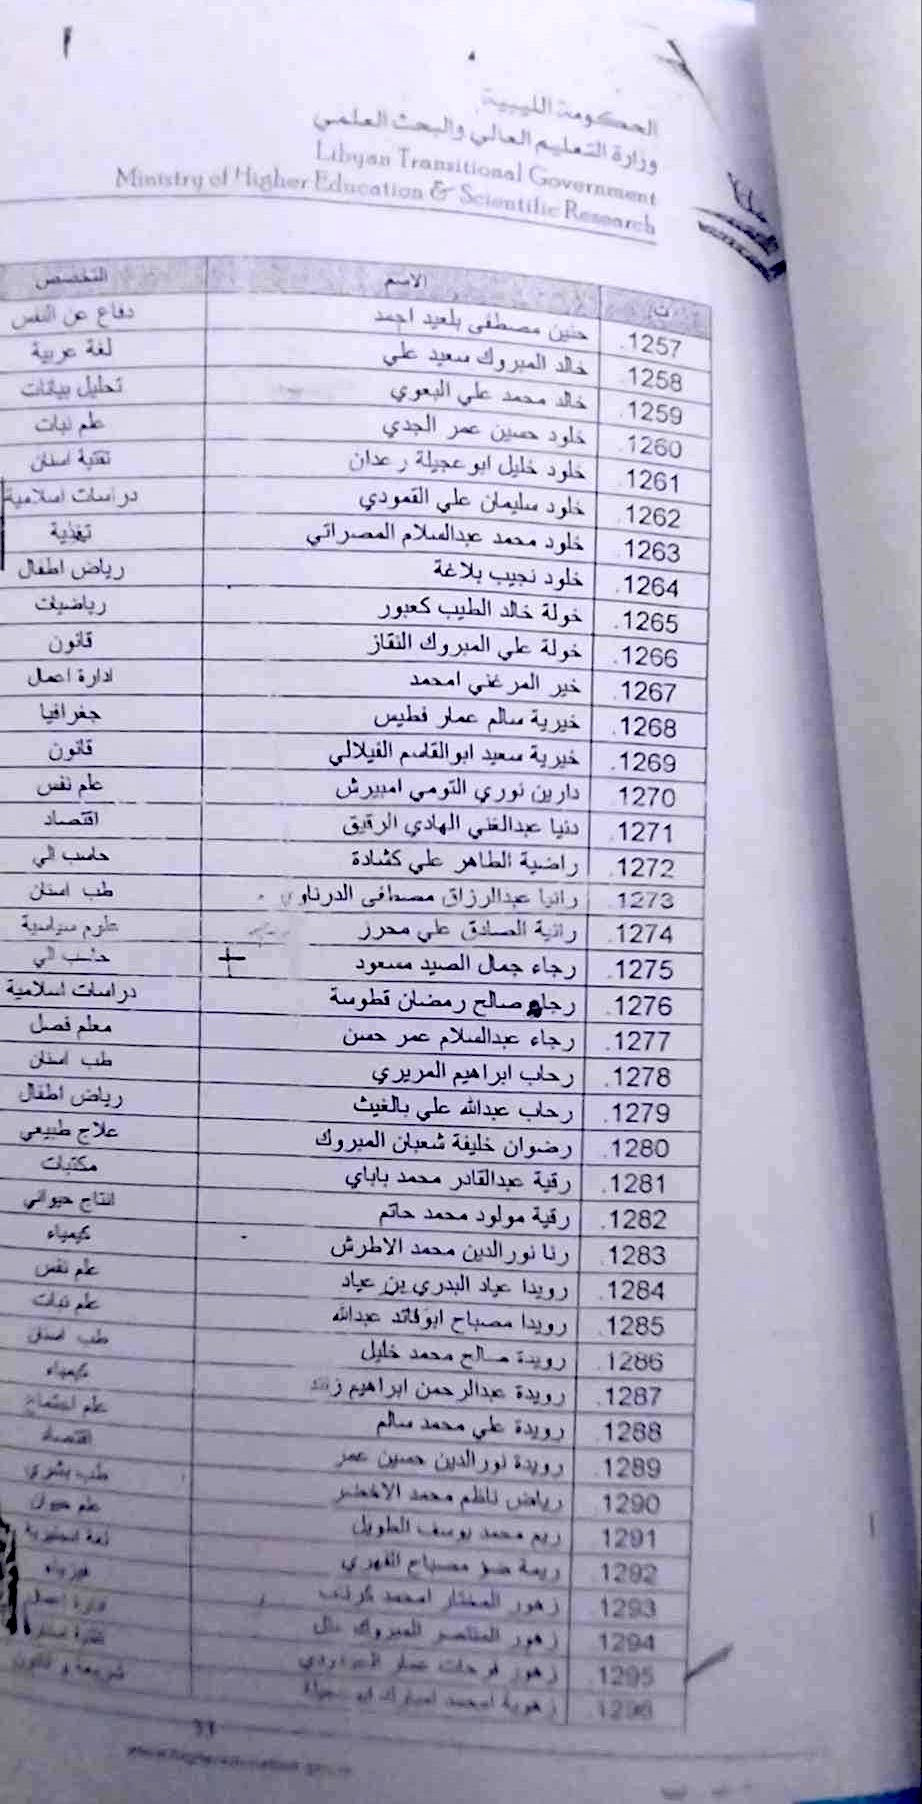 الحكومة الليبية
وزارة التعليم العالي والبحث العلمي
Libyan Transitional Government
Ministry of Higher Education & Scientific Research
ت الاسم التخصص
1257. حنين مصطفى بلعيد احمد دفاع عن النفس
1258. خالد المبروك سعيد علي لغة عربية
1259. خالد محمد علي البعوي تحليل بيانات
1260. خلود حسين عمر الجدي علم نبات
1261. خلود خليل ابوعجيلة رعدان تقنية اسنان
1262. خلود سليمان علي القمودي دراسات اسلامية
1263. خلود محمد عبدالسلام المصراتي تغذية
1264. خلود نجيب بلاغة رياض اطفال
1265. خولة خالد الطيب كعبور رياضيات
1266. خولة علي المبروك النقاز قانون
1267. خير المرغني امحمد ادارة اعمال
1268. خيرية سالم عمار فطيس جغرافيا
1269. خيرية سعيد ابوالقاسم الفيلالي قانون
1270. دارين نوري التومي امبيرش علم نفس
1271. دنيا عبدالغني الهادي الرقيق اقتصاد
1272. راضية الطاهر علي كشادة حاسب الي
1273. رانيا عبدالرزاق مصطفى الدرناوي طب اسنان
1274. رانية الصادق علي محرز علوم سياسية
1275. رجاء جمال الصيد مسعود حاسب الي
1276. رجاء صالح رمضان قطوسة دراسات اسلامية
1277. رجاء عبدالسلام عمر حسن معلم فصل
1278. رحاب ابراهيم المريري طب اسنان
1279. رحاب عبدالله علي بالغيث رياض اطفال
1280. رضوان خليفة شعبان المبروك علاج طبيعي
1281. رقية عبدالقادر محمد باباي مكتبات
1282. رقية مولود محمد حاتم انتاج حيواني
1283. رنا نورالدين محمد الاطرش كيمياء
1284. رويدا عياد البدري بن عياد علم نفس
1285. رويدا مصباح ابوقائد عبدالله علم نبات
1286. رويدة صالح محمد خليل طب اسنان
1287. رويدة عبدالرحمن ابراهيم كيمياء
1288. رويدة علي محمد سالم علم اجتماع
1289. رويدة نورالدين حسين عمر اقتصاد
1290. رياض ناظم محمد الاخضر طب بشري
1291. ريم محمد يوسف الطويل علم حيوان
1292. ريمة ضو مصباح الفهري لغة انجليزية
1293. زهور المختار امحمد فيزياء
1294. زهور المبروك ادارة اعمال
1295. زهور فرحات عمار
1296. زهوية امحمد امبارك شريعة و قانون